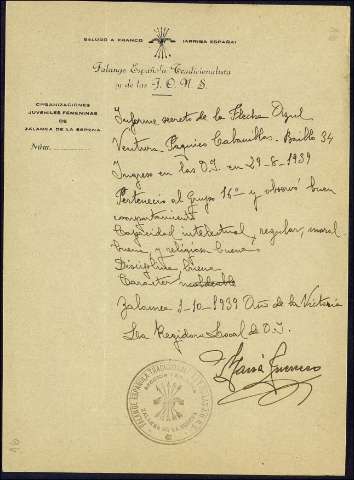 SALUDO A FRANCO ¡ARRIBA ESPAÑA!
Falange Española Tradicionalista
y de las J. O. N. S.
ORGANIZACIONES
JUVENILES FEMENINAS
DE
ZALAMEA DE LA SERENA
Núm.
Informe secreto de la Flecha Azul
Ventura Cabanillas - Bailén 34
Ingreso en las O.J. en 29-8-1939
Pertenecio al Grupo 16º y observó buen
comportamiento
Capacidad intelectual, regular, moral
buena y religiosa buena
Disciplina buena
Caracter
Zalamea 1-10-1939 Año de la Victoria
La Regidora Local de O.J.
Guerrero
FALANGE ESPAÑOLA TRADICIONALISTA
ZALAMEA DE LA SERENA